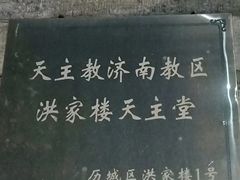 天主教济南教区
洪家楼天主堂
历城区洪家楼1号